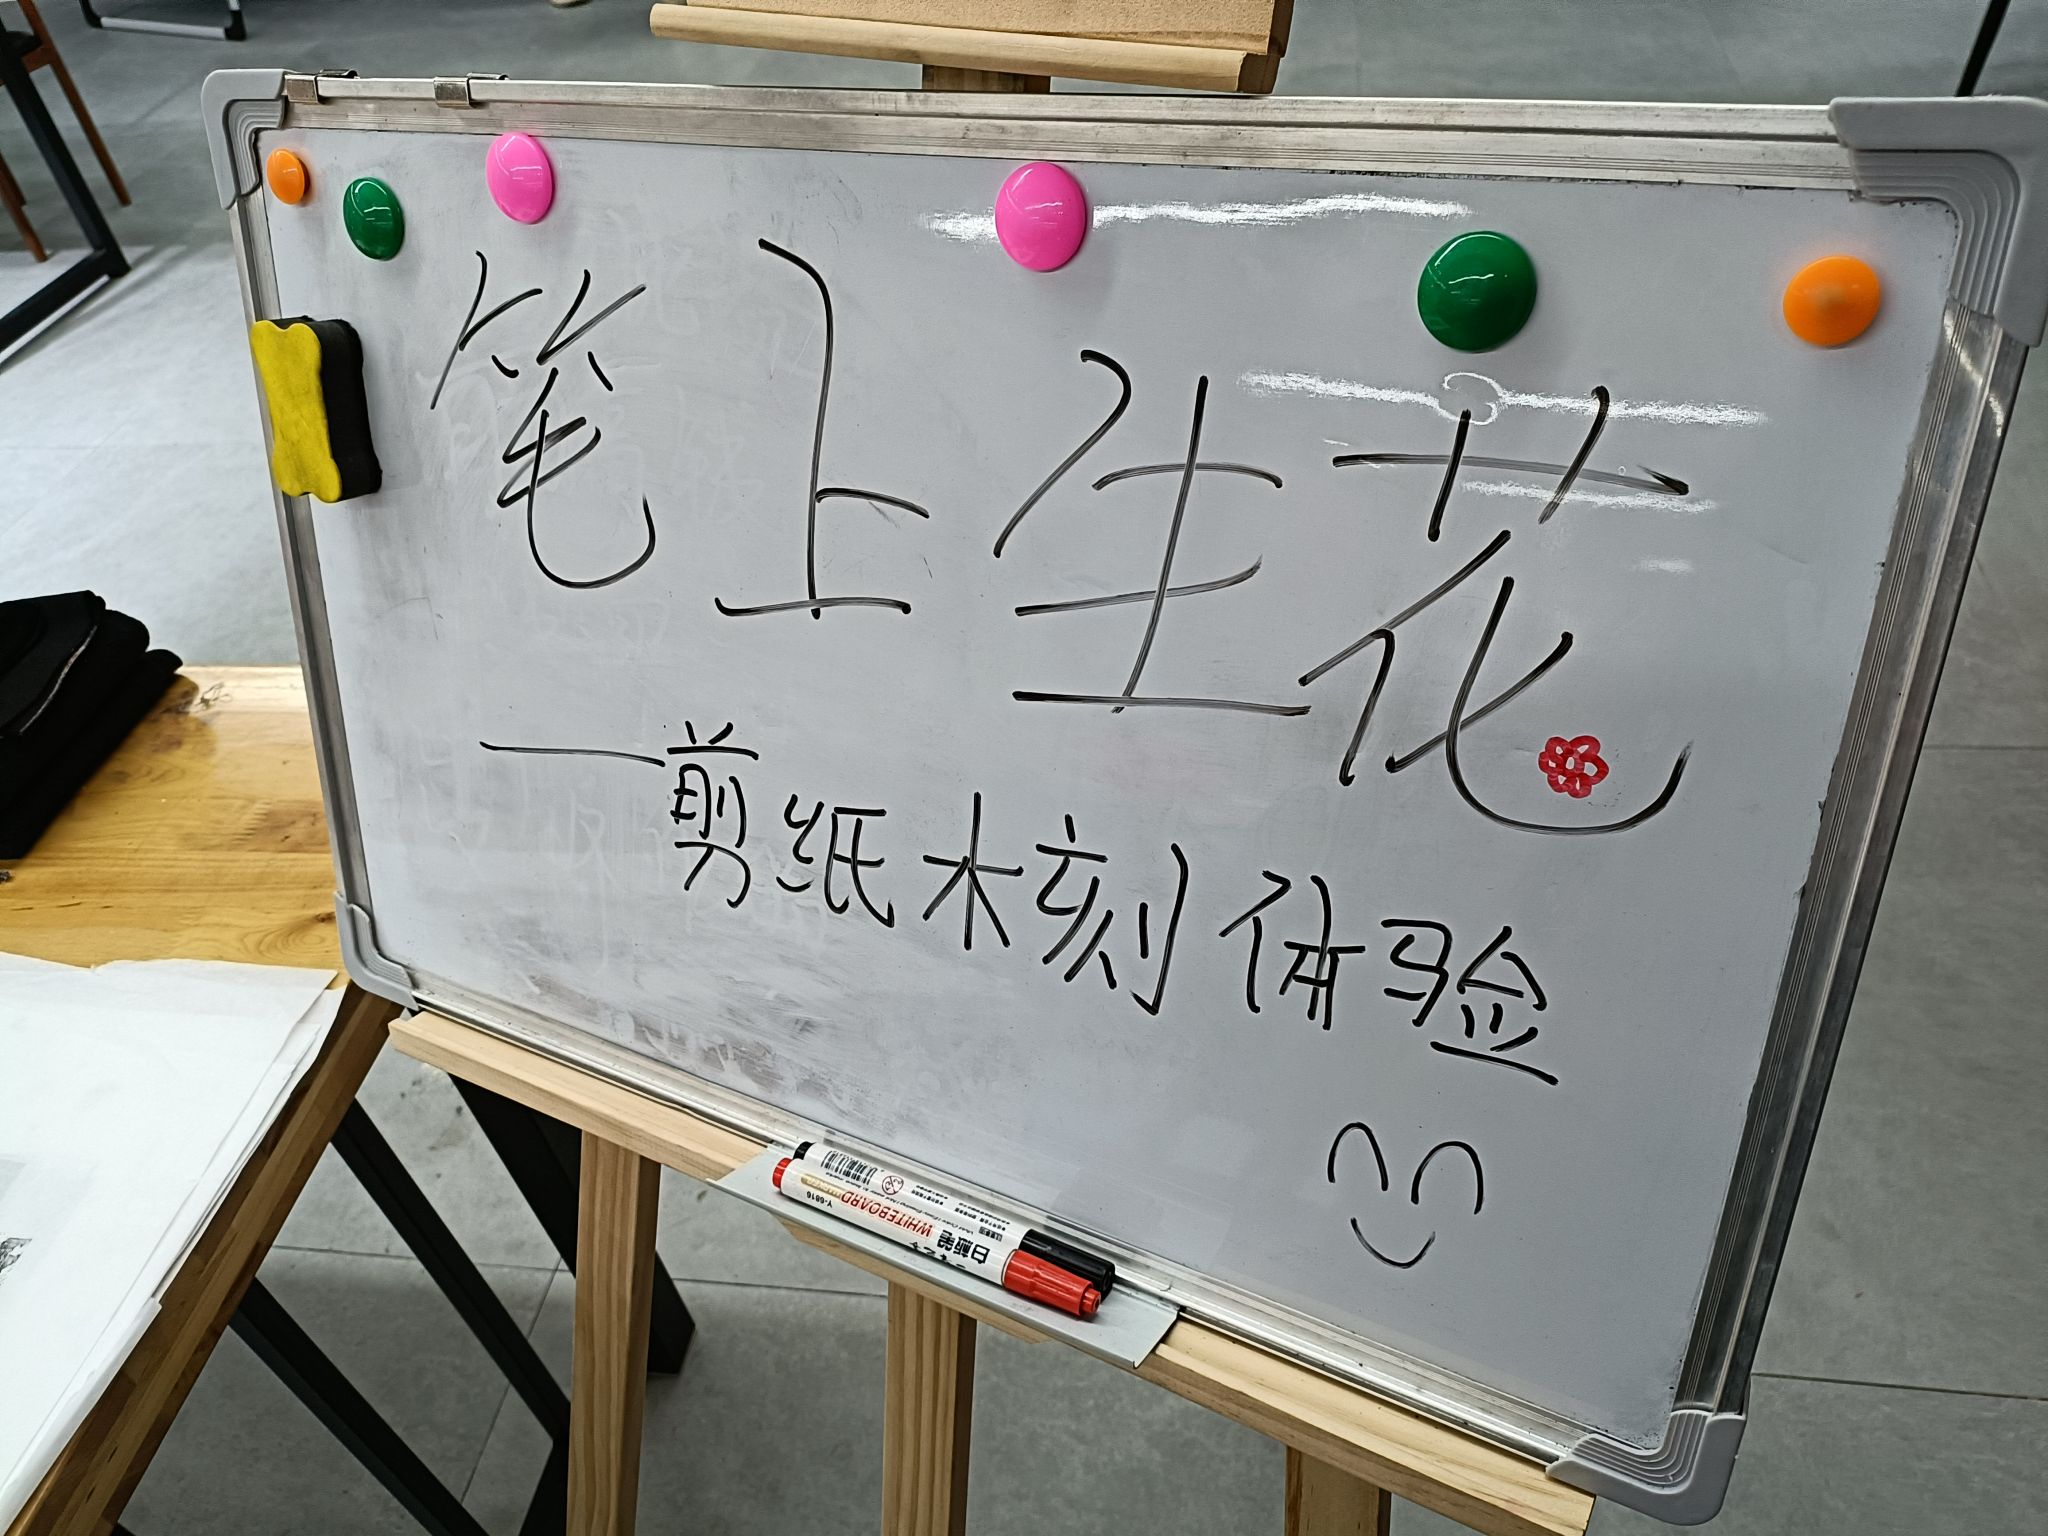 笔上生花
—剪纸木刻体验
白板笔
WHITEBOARD
MARKER
Y-6816